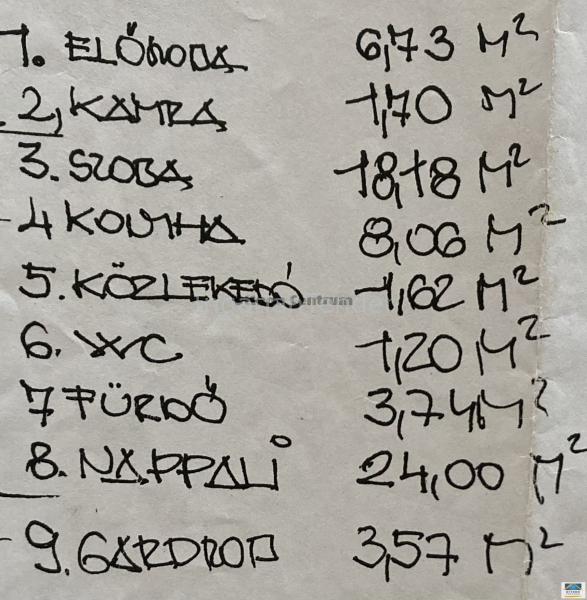 1. ELŐSZOBA 6,73 M²
2, KAMRA 1,70 M²
3. SZOBA 18,18 M²
4 KONYHA 8,06 M²
5. KÖZLEKEDŐ 1,62 M²
Otthon Centrum
6. WC 1,20 M²
7 FÜRDŐ 3,74 M²
8. NAPPALI 24,00 M²
9. GARDROB 3,57 M²